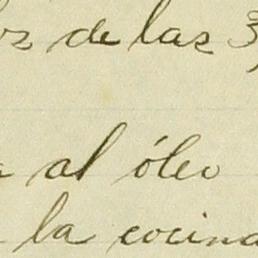 de las 3
al óleo
la cocina